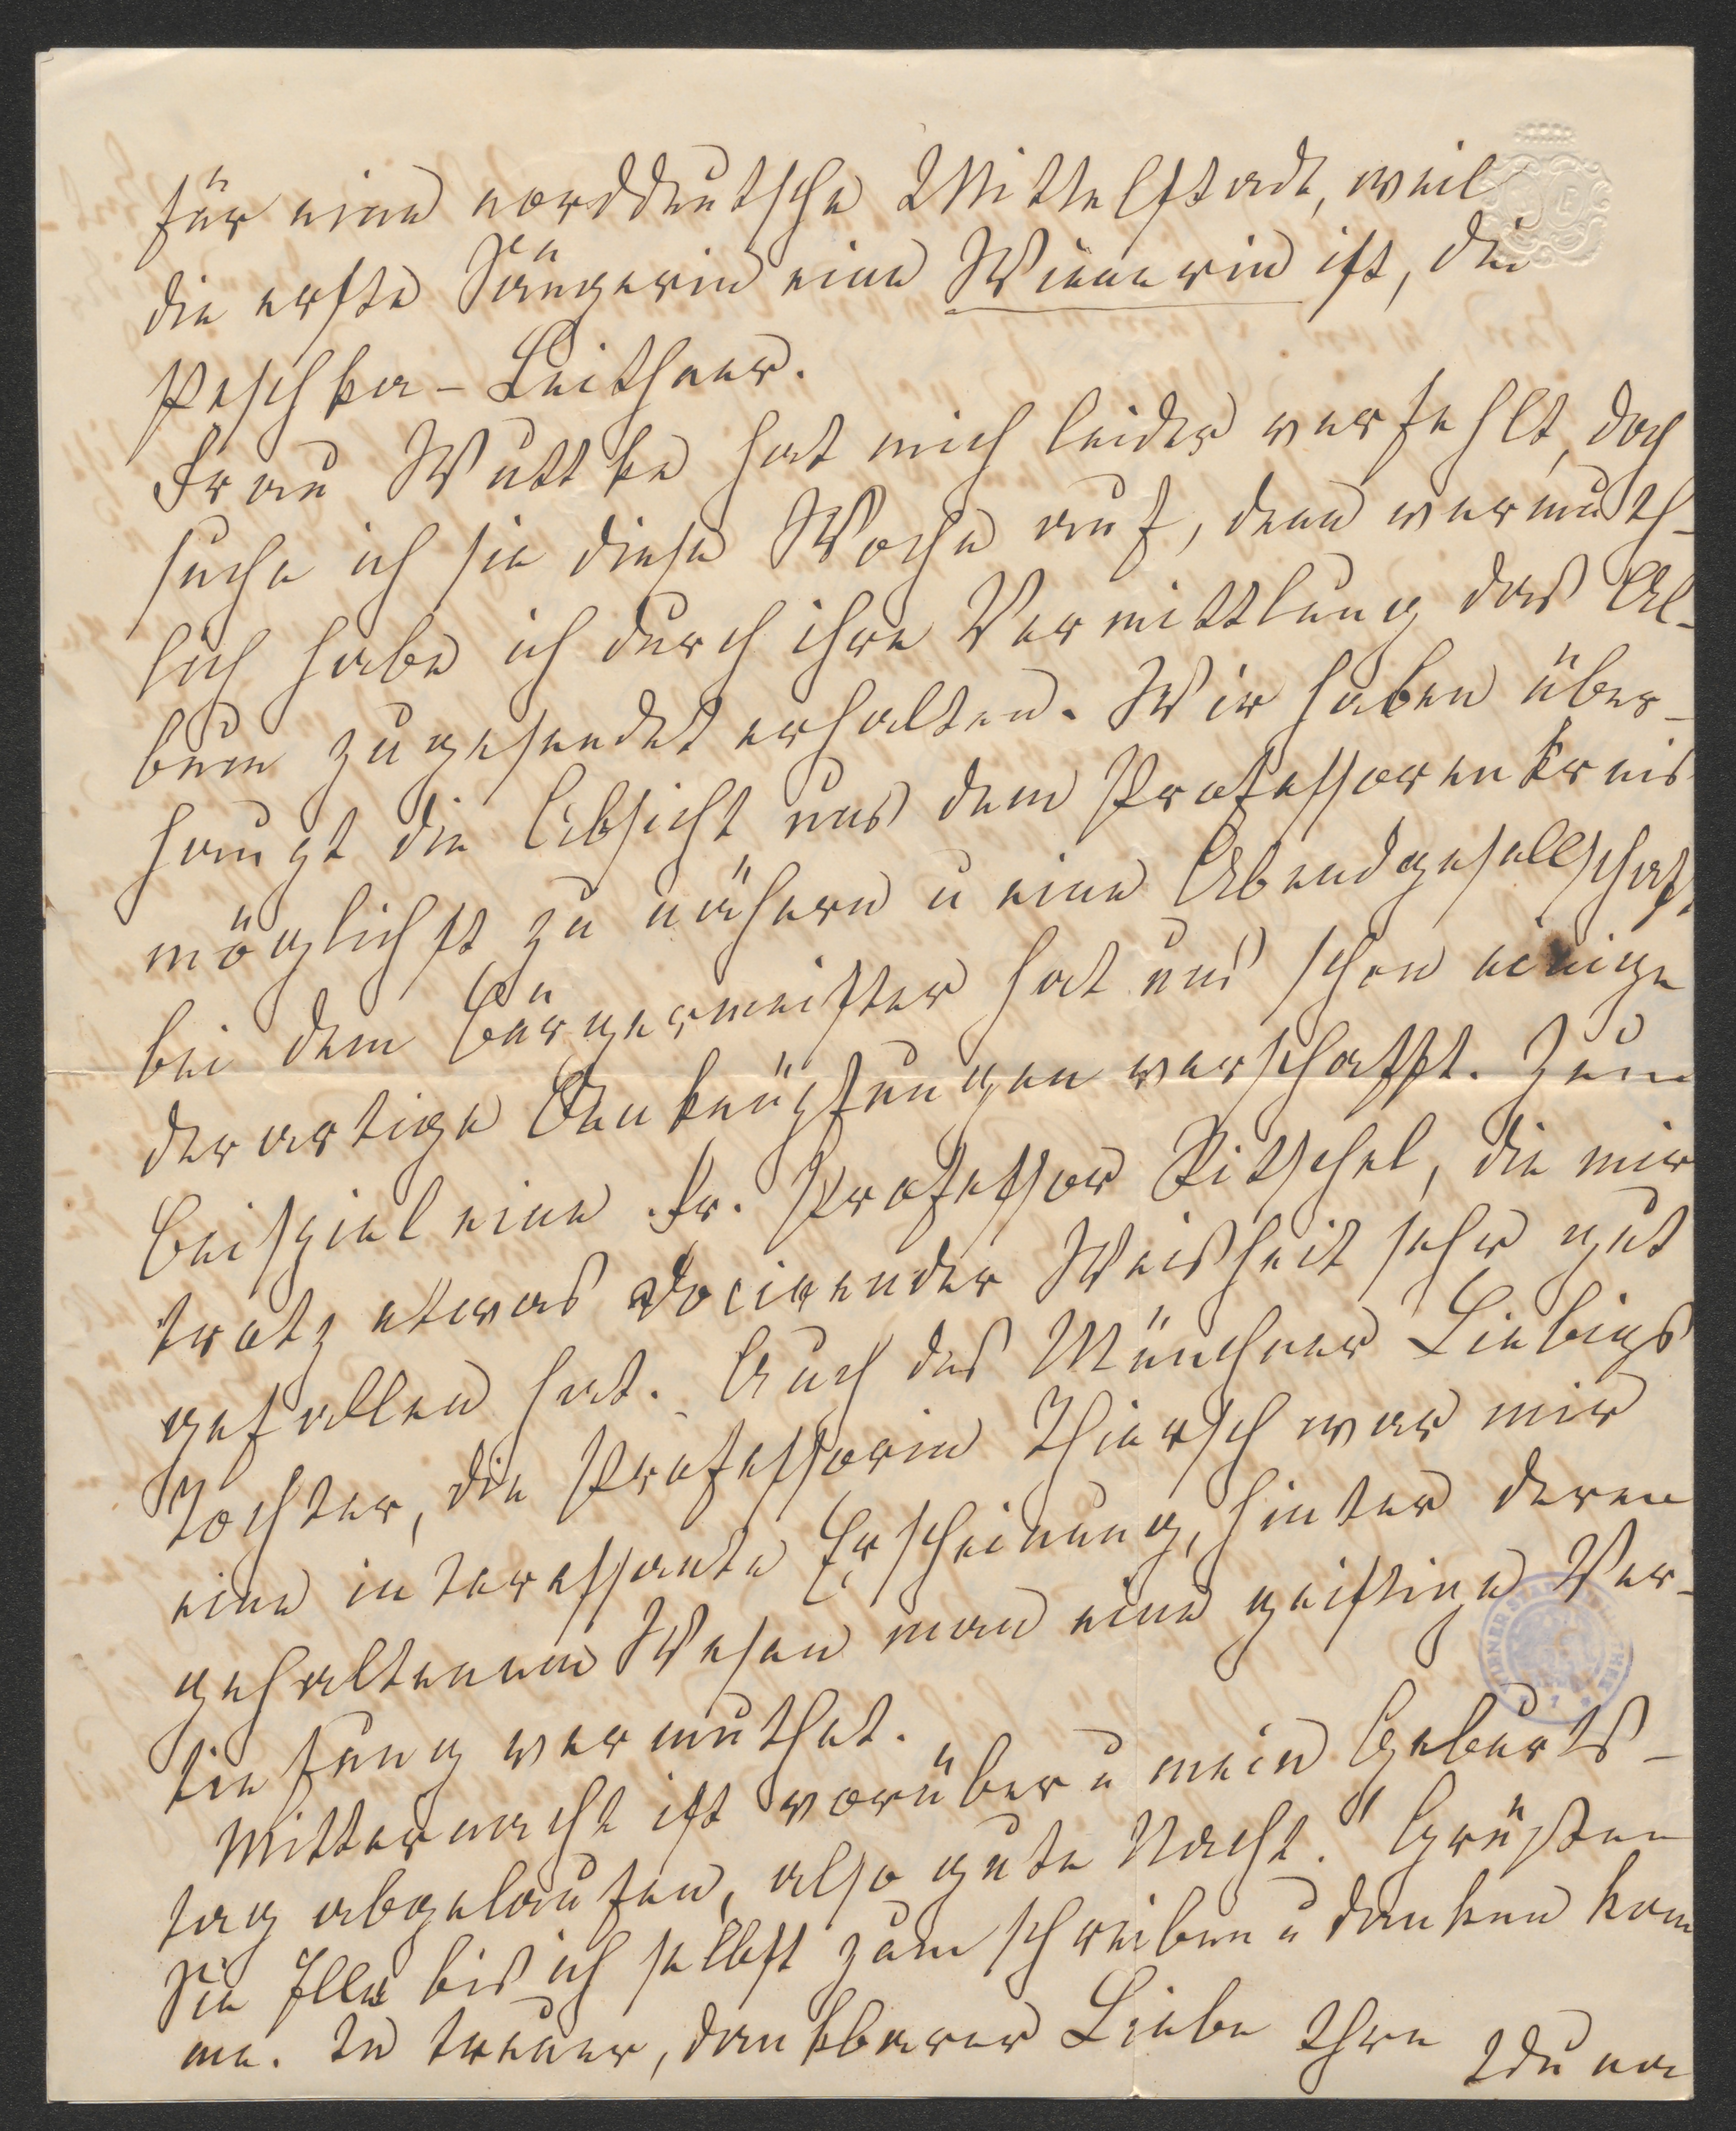 für eine norddeutsche Mittelstadt, weil
die erste Sängerin eine Wienerin ist, die
Peschka-Leithner.
Frau Wuttke hat mich leider verfehlt, doch
suche ich sie diese Woche auf, denn vermuth-
lich habe ich durch ihre Vermittlung das Al-
bum zugesendet erhalten. Wir haben über-
haupt die Absicht uns dem Professorenkreis
möglichst zu nähern u eine Abendgesellschaft
bei dem Bürgermeister hat uns schon einige
derartige Anknüpfungen verschafft. Zum
Beispiel eine Fr. Professor Ritschel, die mir
trotz etwas docirender Weisheit sehr gut
gefallen hat. Auch des Münchner Liebigs
Tochter, die Professorin Thiersch war mir
eine interessante Erscheinung, hinter deren
gehaltenem Wesen man eine geistige Ver-
tiefung vermuthet.
Mitternacht ist vorüber u mein Geburts-
tag abgelaufen, also gute Nacht! Grüßen
Sie bis ich selbst zum schreiben u danken kom
me. In treuer, dankbarer Liebe Ihre
Iduna